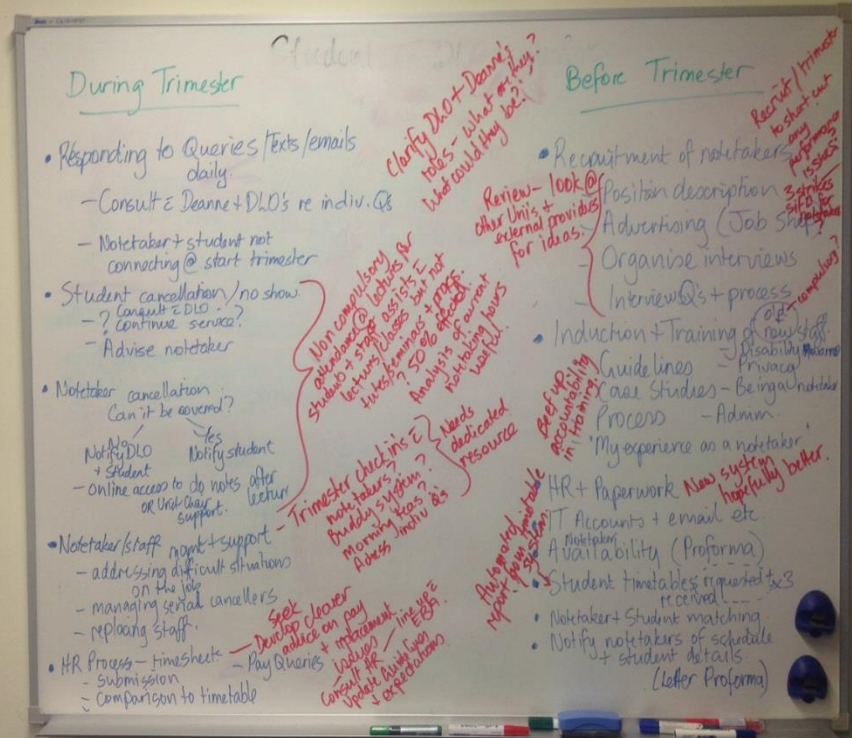 Student
During Trimester
• Responding to Queries/Texts/emails
daily.
- Consult c̄ Deanne + DLO's re indiv. Q's
- Notetaker + student not
connecting @ start trimester
• Student cancellation/no show.
- ? Consult c̄ DLO
? Continue service?
- Advise notetaker
• Notetaker cancellation
Can it be covered?
No
Yes
Notify DLO
+ Student
Notify student
- Online access to do notes after
lecture
OR Unit Chair
support.
• Notetaker/staff mgmt + support
- addressing difficult situations
on the job
- managing serial cancellers
- replacing staff.
• HR Process - timesheets
- submission
- comparison to timetable
- Pay Queries
Clarify DLO + Deanne's
roles - what are they?
What could they be?
Non compulsory
attendance @ lectures for
students + staff assists c̄
lectures/classes but not
tutes/seminars + pracs.
? 50% affected.
Analysis of current
notetaking hours
useful.
- Trimester check in's c̄
notetakers?
Buddy system?
Morning teas?
Adress indiv Q's
Needs
dedicated
resource
Seek
- Develop clearer
advice on pay
+ implement
line up c̄
EBA.
Consult HR
Update Guidelines
+ expectations
Before Trimester
• Recruitment of notetakers
- Position description
- Advertising (Job Shop)
- Organise interviews
- Interview Q's + process
Review - look @
other Uni's +
external providers
for ideas.
Recruit/trimester
to short cut
any
performance
issues?
3 strikes
notetakers
?
• Induction + Training of new staff
old
+ compulsory?
Guidelines
- Disability
- Privacy
Case Studies - Being a notetaker
Process - Admin.
"My experience as a notetaker"
Beef up
accountability
in training.
HR + Paperwork
New system
hopefully better.
IT Accounts + email etc
Notetaker
Availability (Proforma)
Automated
report from timetable
system.
• Student timetables requested x3
received
• Notetaker + Student matching
• Notify notetakers of schedule
+ student details
(Letter Proforma)